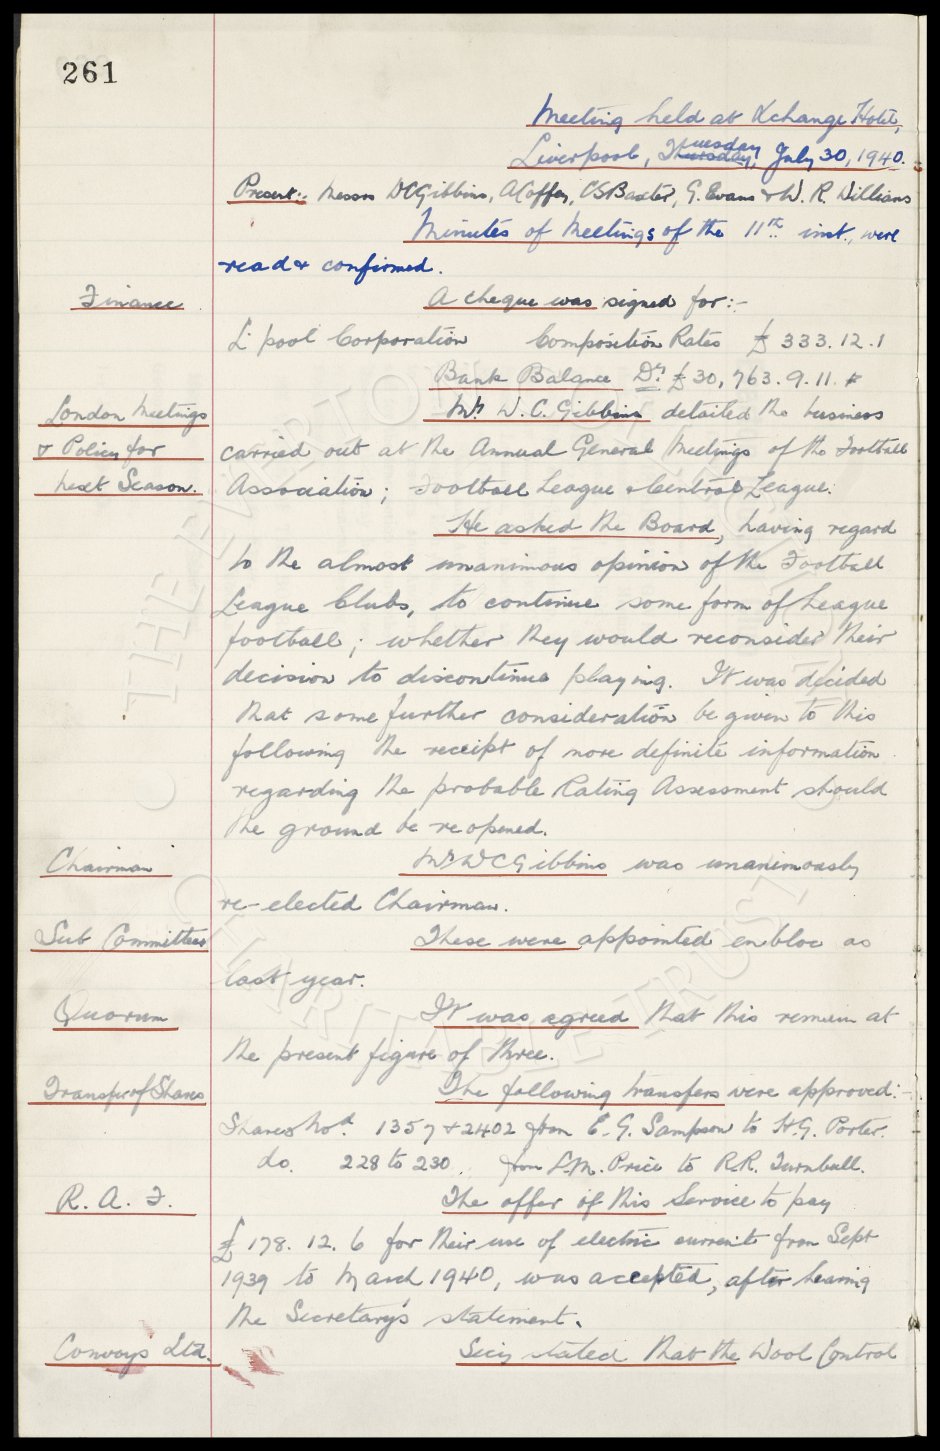 261
Meeting held at Xchange Hotel,
Liverpool, Tuesday, July 30, 1940.
Present:- Messrs W C Gibbins, A Coffey, C S Baxter, G. Evans & W. R. Williams
Minutes of Meetings of the 11th inst., were
read & confirmed.
Finance A cheque was signed for:-
L'pool Corporation Composition Rates £333.12.1
Bank Balance Dr £30,763.9.11.
London Meetings Mr W. C. Gibbins detailed the business
& Policy for carried out at the Annual General Meetings of the Football
next Season. Association; Football League & Central League.
He asked the Board, having regard
to the almost unanimous opinion of the Football
League Clubs, to continue some form of League
football; whether they would reconsider their
decision to discontinue playing. It was decided
that some further consideration be given to this
following the receipt of more definite information
regarding the probable Rating Assessment should
the ground be reopened.
Chairman Mr W C Gibbins was unanimously
re-elected Chairman.
Sub Committees These were appointed en bloc as
last year.
Quorum It was agreed that this remain at
the present figure of three.
Transfer of Shares The following transfers were approved:-
Shares Nos. 1357 & 2402 from E. G. Sampson to H. G. Porter.
do. 228 to 230 from L. M. Price to R. R. Turnbull.
R. A. F. The offer of this Service to pay
£178.12.6 for their use of electric current from Sept
1939 to March 1940, was accepted, after hearing
the Secretary's statement.
Convoys Ltd. Secy stated that the Wool Control
THE EVERTON
CHARITABLE TRUST